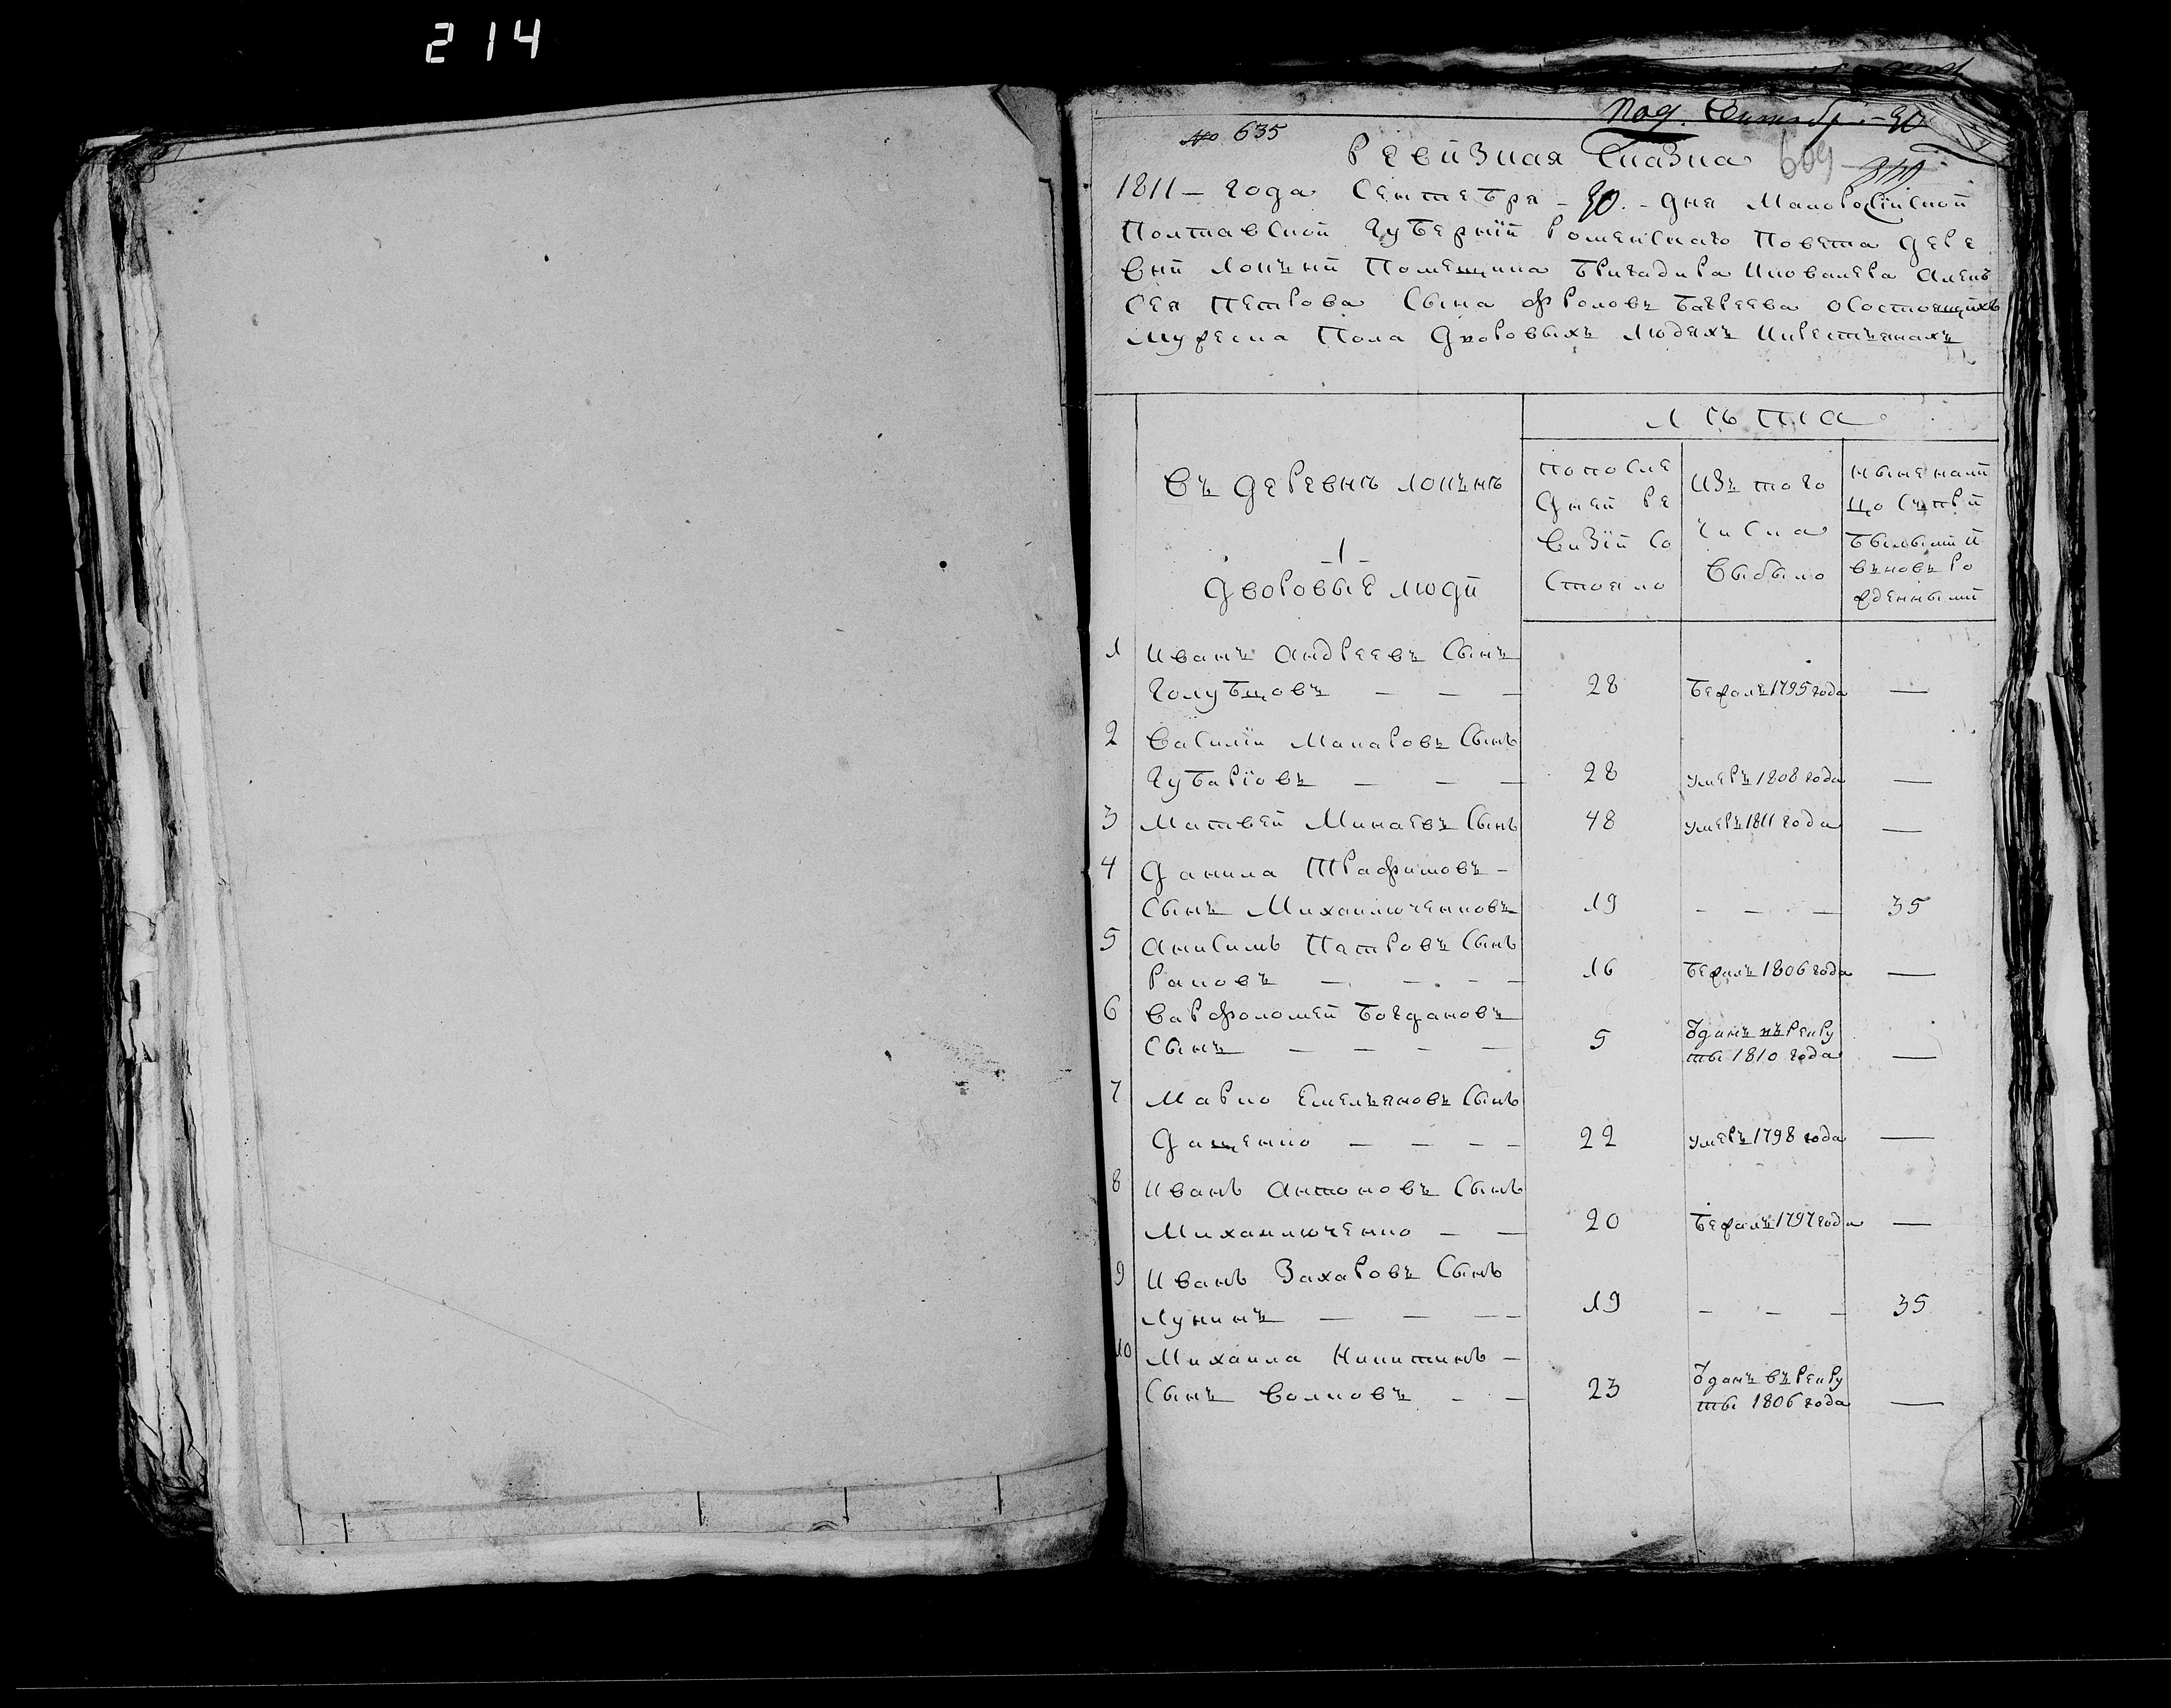 214
№ 635
Под. Сентебр. 30
Ревизная Сказка 609
1811 – года Сентебря – 30. – дня Малоросійской
Полтавской Губерніи Роменскаго Повета дере
вни Локни Помещика Бригадира Икавалера Алекъ
сея Петрова Сына Фроловъ Багреева осостоящихъ
Мужеска Пола дворовыхъ Людяхъ Икрестъянахъ
Лѣта
Въ деревнѣ Локнѣ
попосле
дней ре
визіи со
стояло
Изъ того
числа
выбыло
ныне нали
цо
вновъ ро
жденными
1
дворовые люди
1 Иванъ Андреевъ Сынъ
Голубцовъ — — — 28 бежалъ 1795 года —
2 Василіи Макаровъ Сынъ
Губаріовъ — — — 28 умеръ 1808 года —
3 Матвей Минаевъ Сынъ 48 умеръ 1811 года —
4 Данила Трафимовъ –
Сынъ Михаилюченковъ 19 – – — 35
5 Анисимъ Патровъ Сынъ
Раковъ — — — — 16 бежалъ 1806 года —
6 Варфоломей Богдановъ
Сынъ — — — — 5 Одданъ въ Рекру
ты 1810 года —
7 Марко Емелъяновъ Сынъ
Дащенко — — — — 22 умеръ 1798 года —
8 Иванъ Антоновъ Сынъ
Михаилюченко — — 20 бежалъ 1797 года —
9 Иванъ Захаровъ Сынъ
Лунинъ — — — 19 – – — 35
10 Михаила Никитинъ –
Сынъ Волковъ – — 23 Одданъ въ Рекру
ты 1806 года —